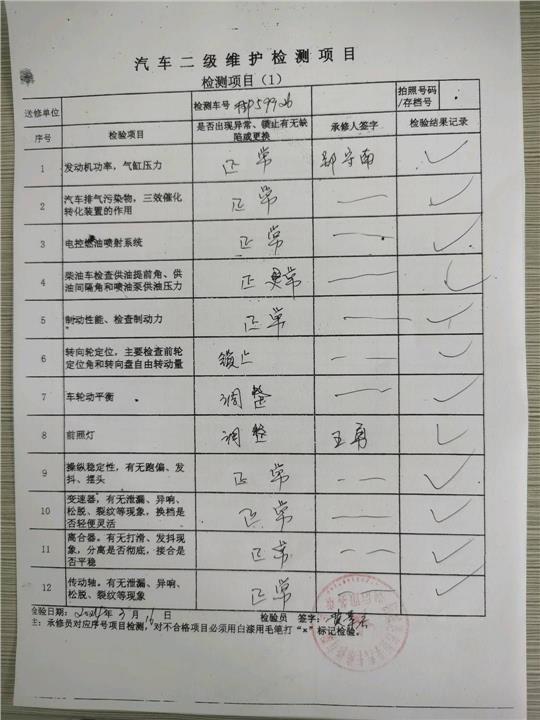 汽车二级维护检测项目
检测项目（1）
送修单位 检测车号 拍照号码/存档号
序号 检验项目 是否出现异常、锁止有无缺陷或更换 承修人签字 检验结果记录
1 发动机功率，气缸压力 正常 ✓
2 汽车排气污染物，三效催化转化装置的作用 正常 — ✓
3 电控燃油喷射系统 正常 — ✓
4 柴油车检查供油提前角、供油间隔角和喷油泵供油压力 正常 — ✓
5 制动性能、检查制动力 正常 — ✓
6 转向轮定位，主要检查前轮定位角和转向盘自由转动量 锁止 — ✓
7 车轮动平衡 调整 — ✓
8 前照灯 调整 王勇 ✓
9 操纵稳定性，有无跑偏、发抖、摆头 正常 — ✓
10 变速器，有无泄漏、异响、松脱、裂纹等现象，换档是否轻便灵活 正常 — ✓
11 离合器。有无打滑、发抖现象，分离是否彻底，接合是否平稳 正常 — ✓
12 传动轴。有无泄漏、异响、松脱、裂纹等现象 正常 — ✓
检验日期： 年3月16日 检验员 签字：
主：承修员对应序号项目检测，对不合格项目必须用白漆用毛笔打“×”标记检验。